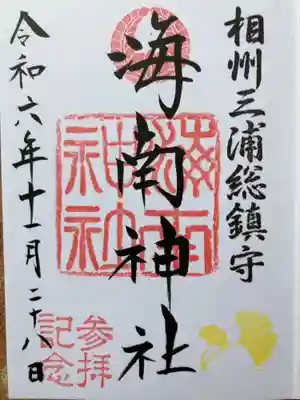 相州三浦総鎮守
海南神社
海南神社
参拝記念
令和六年十一月二十八日